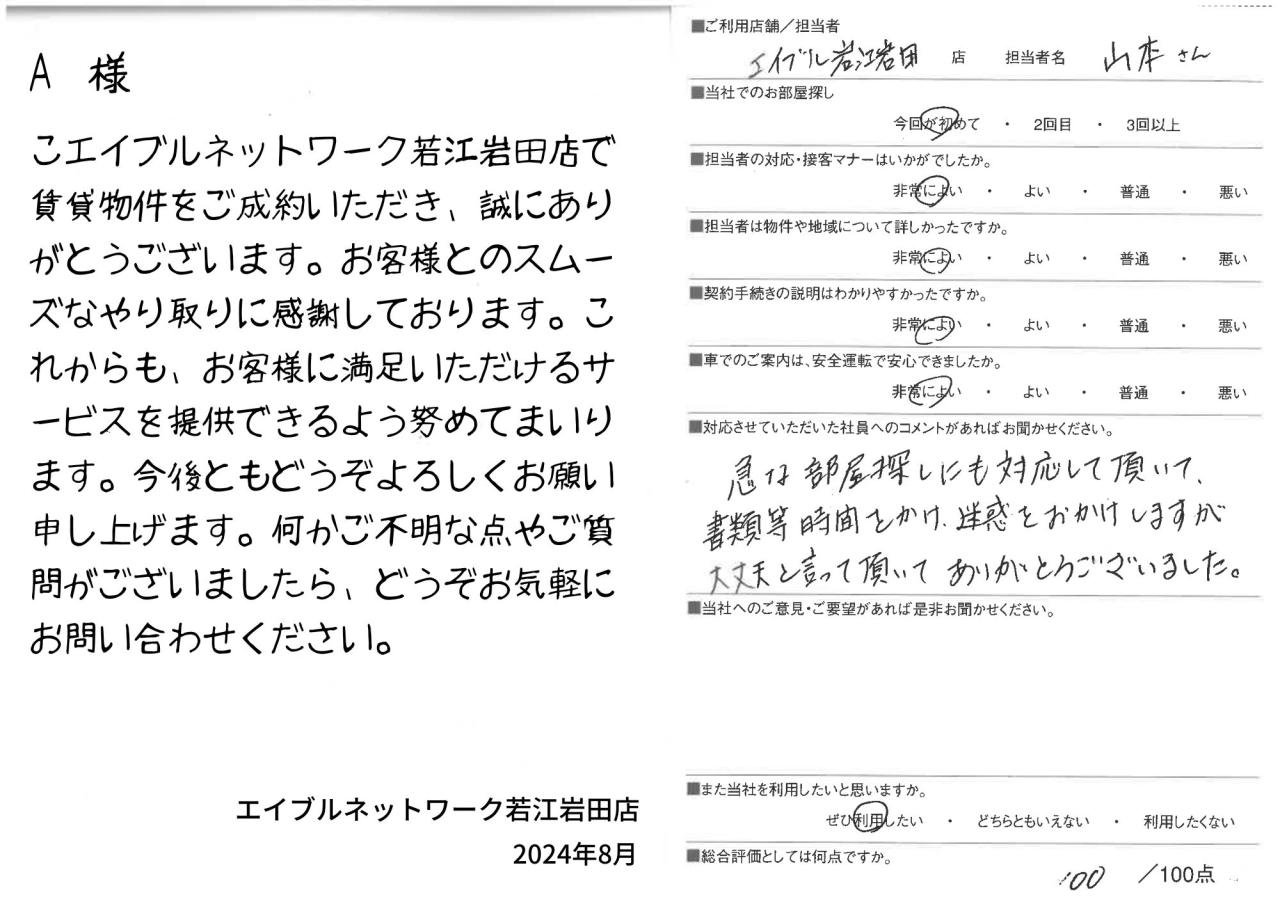 A 様
こエイブルネットワーク若江岩田店で
賃貸物件をご成約いただき、誠にあり
がとうございます。お客様とのスムー
ズなやり取りに感謝しております。こ
れからも、お客様に満足いただけるサ
ービスを提供できるよう努めてまいり
ます。今後ともどうぞよろしくお願い
申し上げます。何かご不明な点やご質
問がございましたら、どうぞお気軽に
お問い合わせください。
エイブルネットワーク若江岩田店
2024年8月
■ご利用店舗／担当者
エイブル若江岩田 店 担当者名 山本さん
■当社でのお部屋探し
今回が初めて ・ 2回目 ・ 3回以上
■担当者の対応・接客マナーはいかがでしたか。
非常によい ・ よい ・ 普通 ・ 悪い
■担当者は物件や地域について詳しかったですか。
非常によい ・ よい ・ 普通 ・ 悪い
■契約手続きの説明はわかりやすかったですか。
非常によい ・ よい ・ 普通 ・ 悪い
■車でのご案内は、安全運転で安心できましたか。
非常によい ・ よい ・ 普通 ・ 悪い
■対応させていただいた社員へのコメントがあればお聞かせください。
急な部屋探しにも対応して頂いて、
書類等時間をかけ、迷惑をおかけしますが
大丈夫と言って頂いてありがとうございました。
■当社へのご意見・ご要望があれば是非お聞かせください。
■また当社を利用したいと思いますか。
ぜひ利用したい ・ どちらともいえない ・ 利用したくない
■総合評価としては何点ですか。
100 ／100点